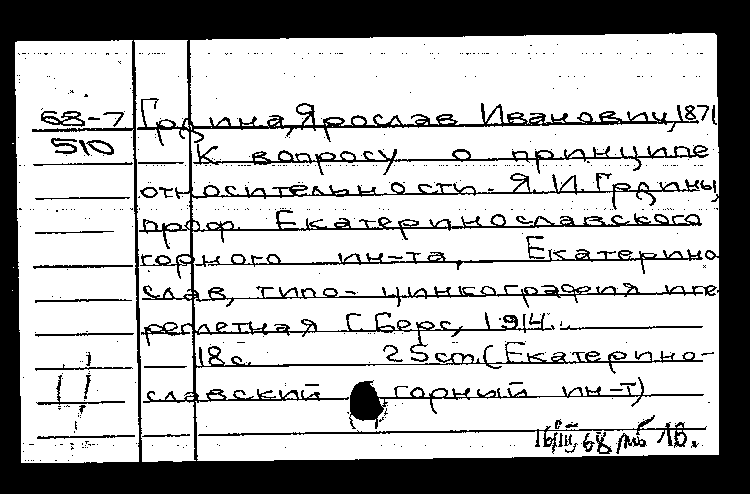 68-7 Грдина, Ярослав Иванович, 1871
510 К вопросу о принципе
относительности. Я. И. Грдины,
проф. Екатеринославского
горного ин-та, Екатерино
слав, типо-цинкография и пе
реплетная С. Берс, 1914.
18с. 25cm. (Екатерино-
славский горный ин-т)
16/III, 68 1В.